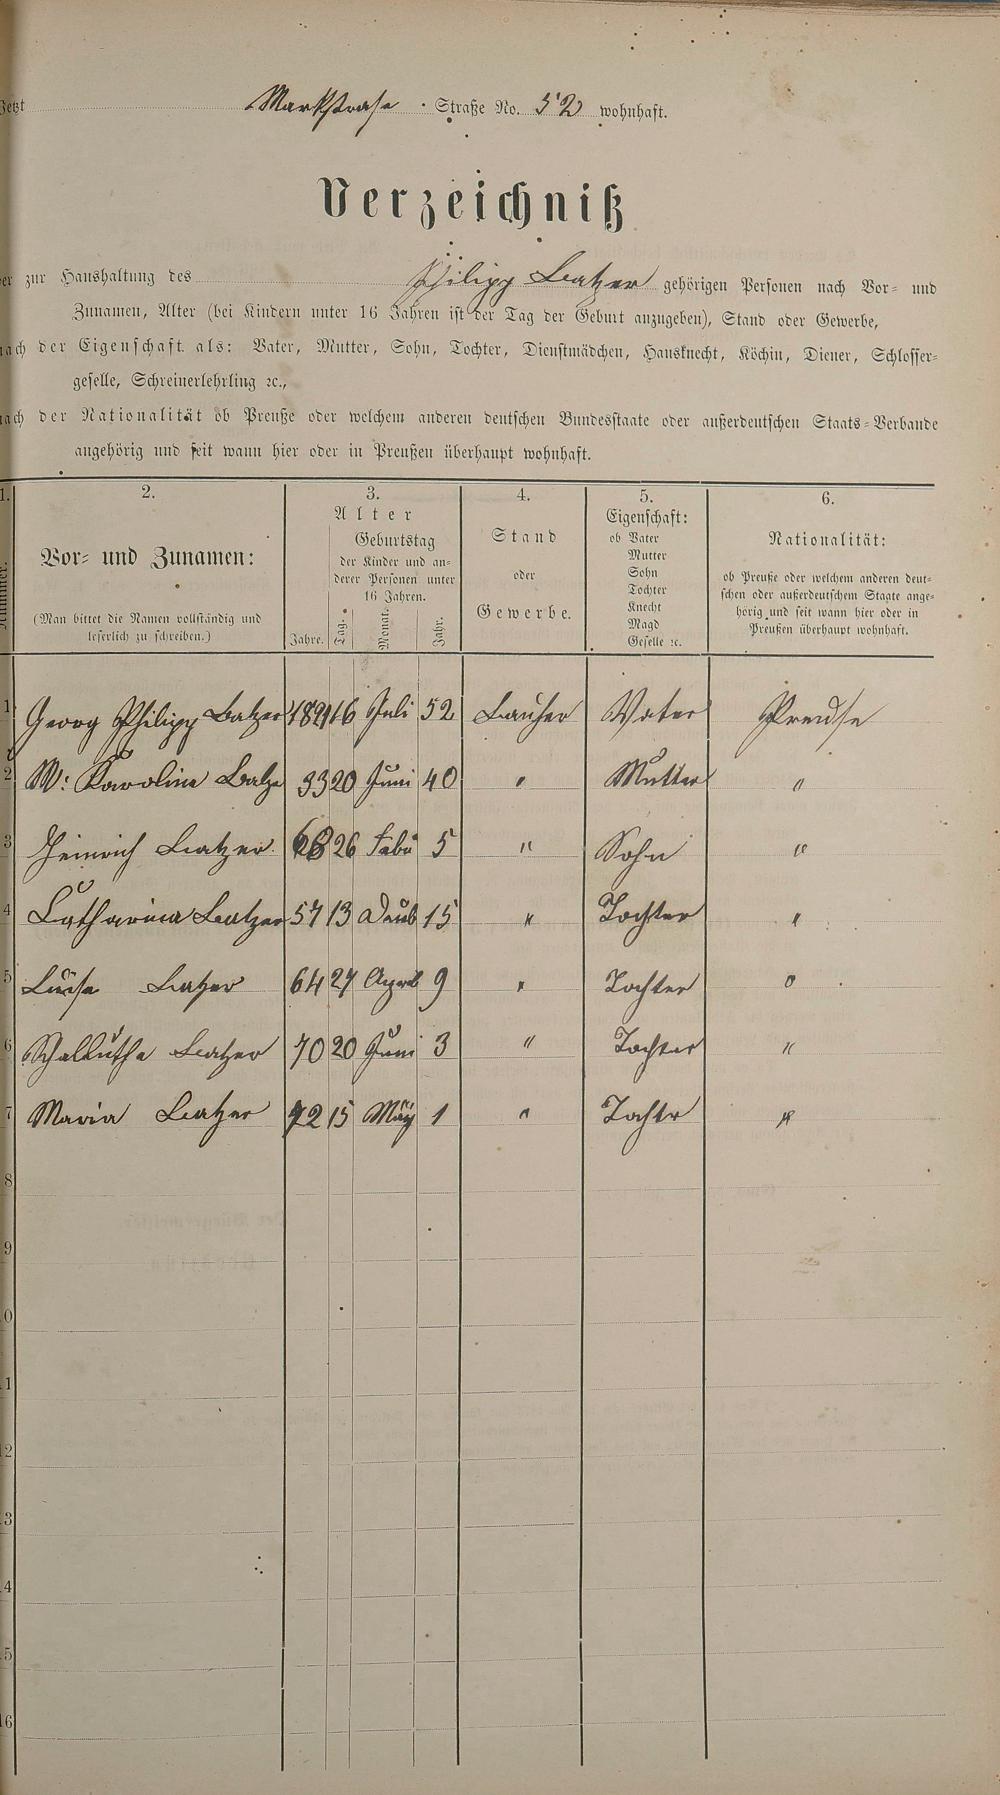 Jetzt Markstrase Straße No. 52 wohnhaft.
Verzeichniß
zur Haushaltung des Philipp Batzer gehörigen Personen nach Vor- und
Zunamen, Alter (bei Kindern unter 16 Jahren ist der Tag der Geburt anzugeben), Stand oder Gewerbe,
nach der Eigenschaft als: Vater, Mutter, Sohn, Tochter, Dienstmädchen, Hausknecht, Köchin, Diener, Schlosser-
geselle, Schreinerlehrling ꝛc.,
nach der Nationalität ob Preuße oder welchem anderen deutschen Bundesstaate oder außerdeutschen Staats-Verbande
angehörig und seit wann hier oder in Preußen überhaupt wohnhaft.
1. 2. 3. 4. 5. 6.
Nummer.
Vor- und Zunamen:
(Man bittet die Namen vollständig und
leserlich zu schreiben.)
Alter
Jahre.
Geburtstag
der Kinder und an-
derer Personen unter
16 Jahren.
Tag. Monat. Jahr.
Stand
oder
Gewerbe.
Eigenschaft:
ob Vater
Mutter
Sohn
Tochter
Knecht
Magd
Geselle ꝛc.
Nationalität:
ob Preuße oder welchem anderen deut-
schen oder außerdeutschem Staate ange-
hörig und seit wann hier oder in
Preußen überhaupt wohnhaft.
1 Georg Philipp Batzer 1821 16 Juli 52 Vater Preuse
2 Karoline Batze 33 20 Juni 40 " Mutter "
3 Heinrich Batzer 68 26 Febr 5 " Sohn "
4 Catharina Batzer 57 13 15 " Tochter "
5 Luise Batzer 64 27 April 9 " Tochter "
6 Batzer 70 20 Juni 3 " Tochter "
7 Maria Batzer 72 15 May 1 " Tochtr "
8
9
0
1
2
3
4
5
16